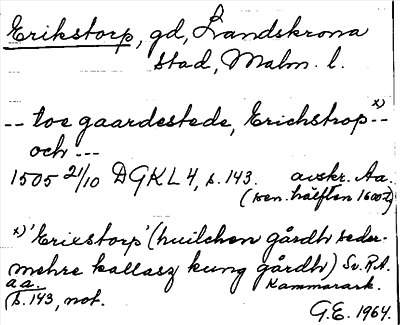 Erikstorp, gd, Landskrona
stad, Malm. l.
-- toe gaardestede, Erichstrop x) --
och ---
1505 21/10 DGKL 4, s. 143. avskr. Aa.
(sen. hälften 1600 t.)
x) 'Erixstorp' (huilchen gårdh seder-
mehre kallasz kung gårdh) Sv. R.A.
a a. Kammarark.
(s. 143, not.
G.E. 1964.